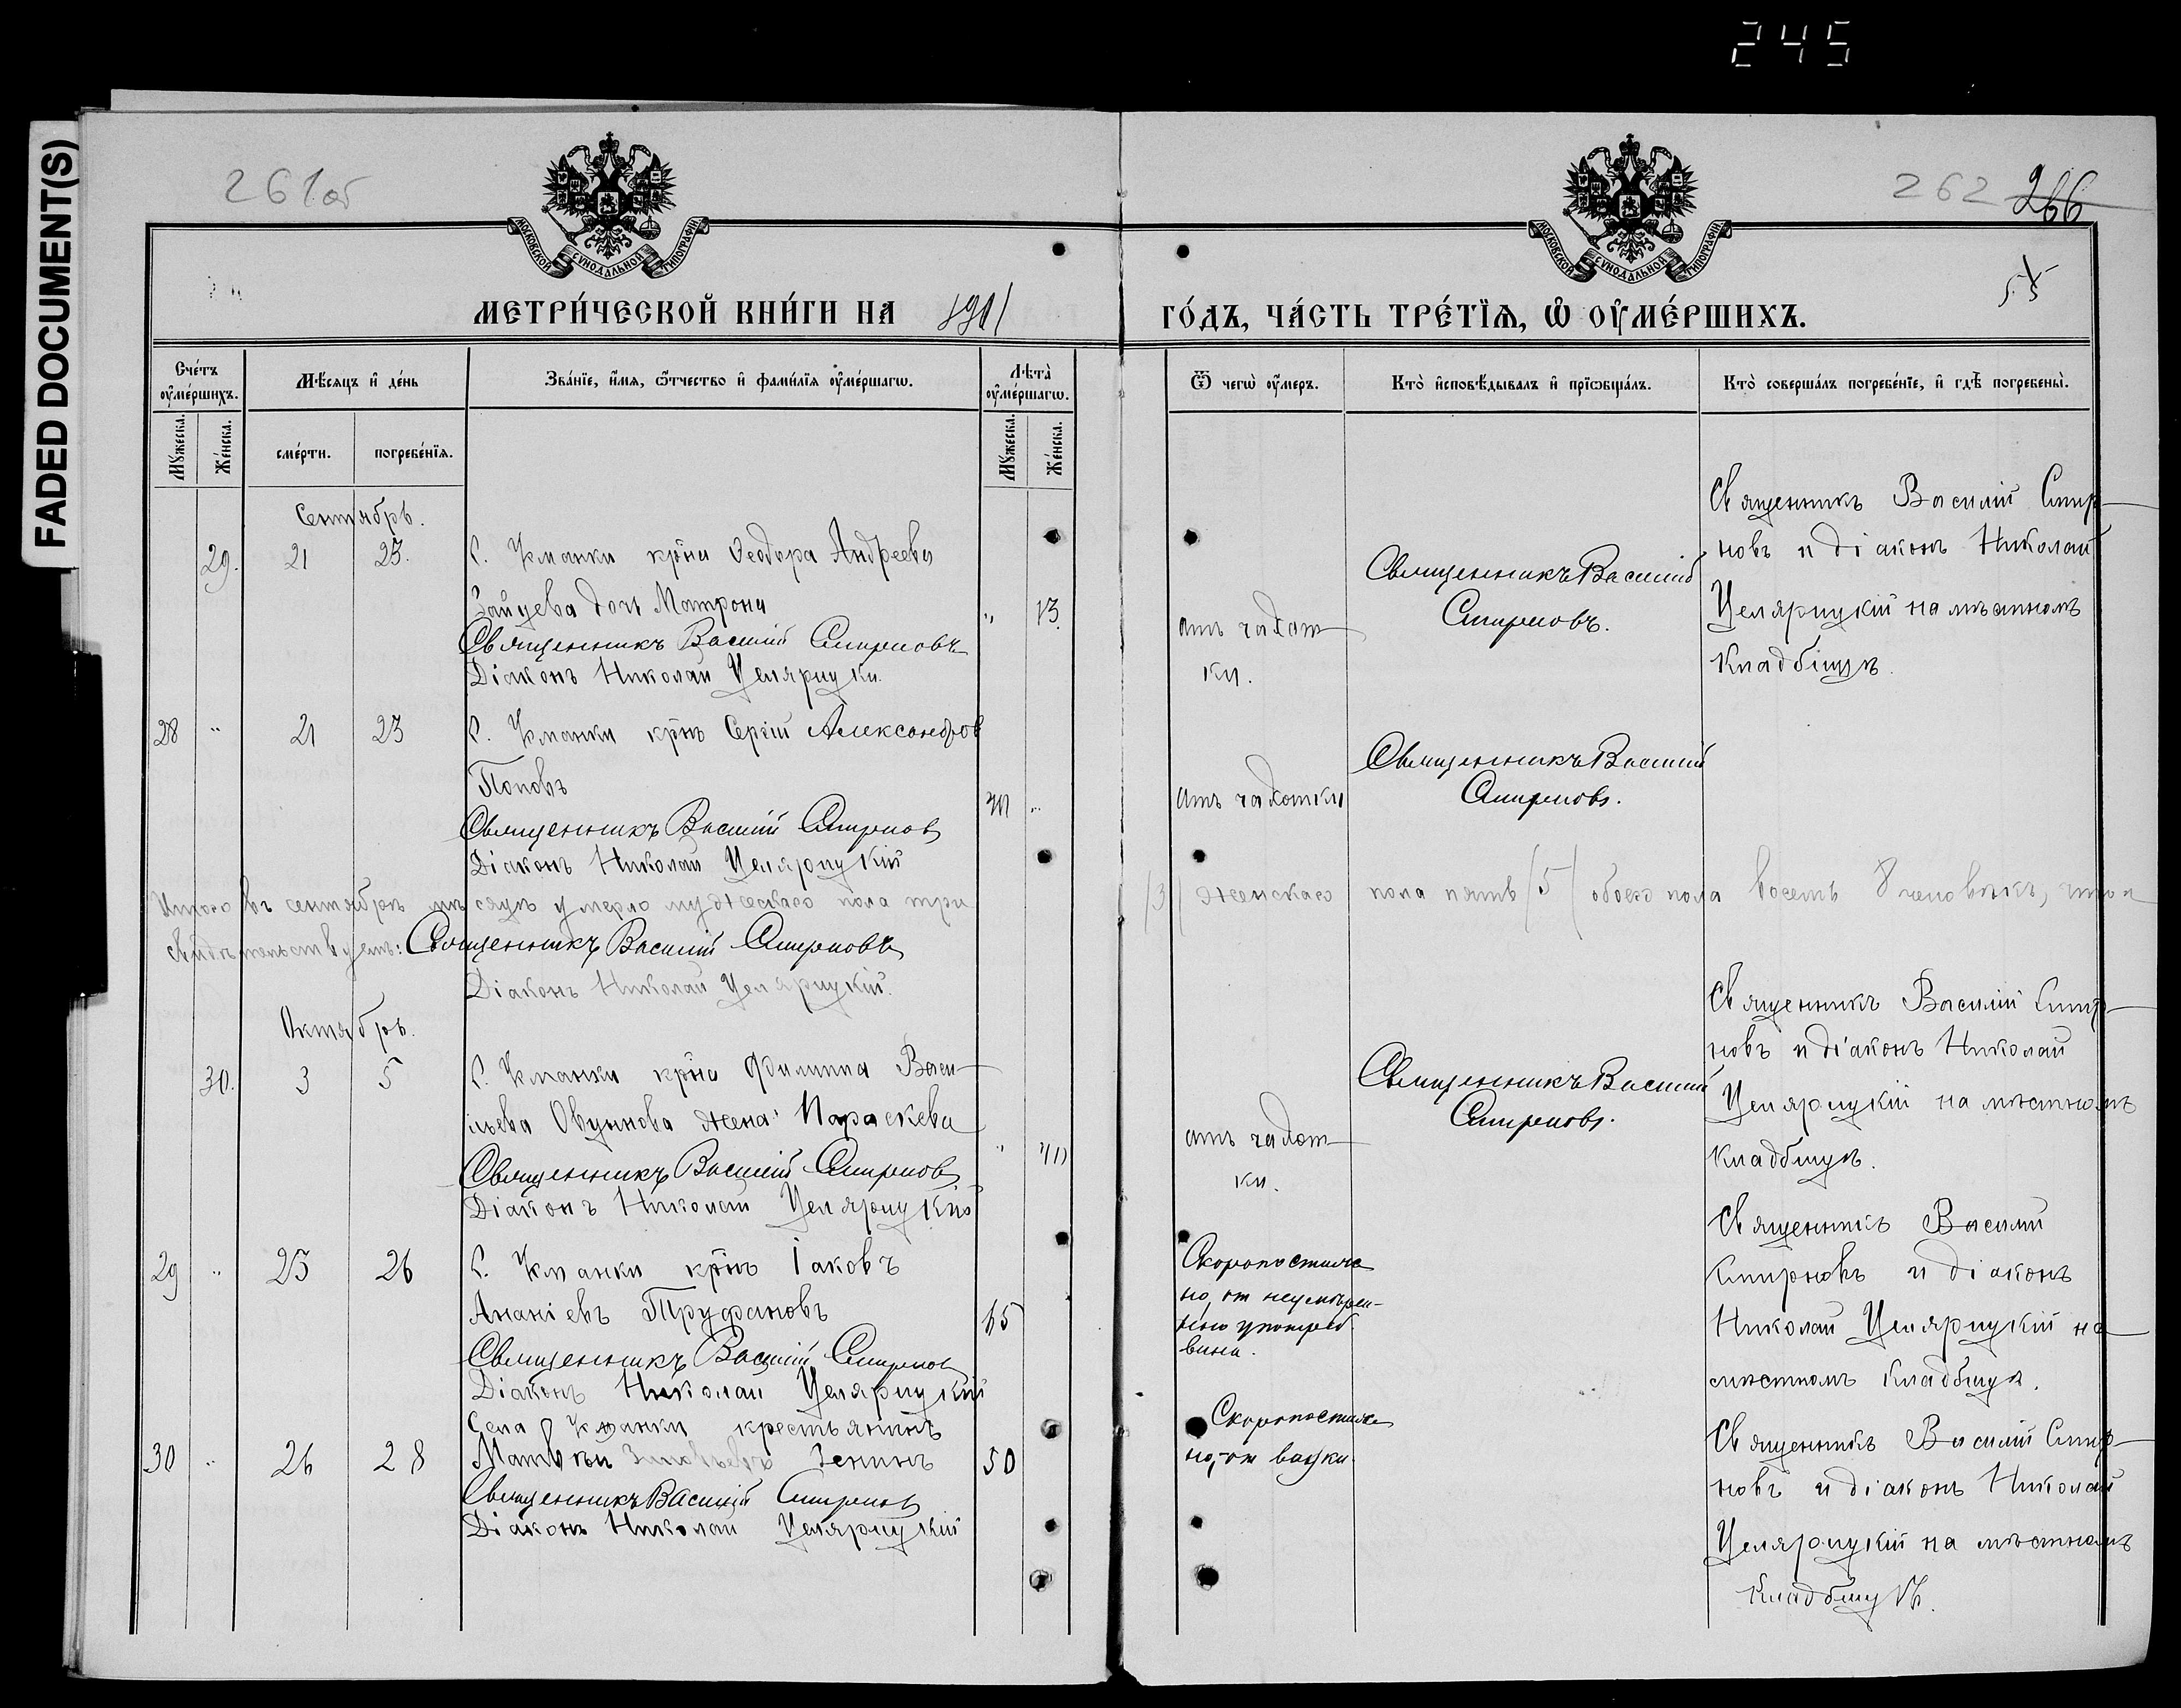 245
FADED DOCUMENT(S)
261об
262 266
МОСКОВСКОЙ СѴНОДАЛЬНОЙ ТИПОГРАФІИ
МОСКОВСКОЙ СѴНОДАЛЬНОЙ ТИПОГРАФІИ
55
МЕТРИ́ЧЕСКОЙ КНИ́ГИ НА 1901 ГО́ДЪ, ЧА́СТЬ ТРЕ́ТІѦ, Ѡ ОУМЕ́РШИХЪ.
Сче́тъ оуме́ршихъ.
Мѣ́сяцъ и де́нь
Зва́нїе, и́мя, ѻ́тчество и фами́лїя оуме́ршагѡ.
Лѣта̀ оуме́ршагѡ.
Ѿ чегѡ̀ оу́меръ.
Кто̀ исповѣ́дывалъ и прїѡбща́лъ.
Кто̀ соверша́лъ погребе́нїе, и гдѣ̀ погребены̀.
Му́жеска. Же́нска. сме́рти. погребе́нїя. Му́жеска. Же́нска.
Сентябрь.
29. 21 23. С. Уманки крѣна Ѳеодора Андреева
Зайцева дочь Матрона " 13.
Священникъ Василій Смирновъ
Діаконъ Николай Целярицкій.
отъ чахот-
ки.
Священникъ Василій
Смирновъ.
Священникъ Василій Смир-
новъ и діаконъ Николай
Целярицкій на мѣстномъ
кладбищѣ.
28 " 21 23 С. Уманки крѣнъ Сергій Александров
Поповъ "
Священникъ Василій Смирновъ
Діаконъ Николай Целярицкій
отъ чахотки
Священникъ Василій
Смирновъ.
Итого въ сентябрѣ мѣсяцѣ умерло мужескаго пола три /3/ женскаго пола пять /5/ обоего пола восемь 8 человѣкъ, что и
свидѣтельствуемъ: Священникъ Василій Смирновъ
Діаконъ Николай Целярицкій.
Октябрь.
30. 3 5 С. Уманки крѣна Филиппа Васи-
льева жена Параскева "
Священникъ Василій Смирновъ.
Діаконъ Николай Целярицкій
отъ чахот-
ки.
Священникъ Василій
Смирновъ.
Священникъ Василій Смир-
новъ и діаконъ Николай
Целярицкій на мѣстномъ
кладбищѣ.
29 " 25 26 С. Уманки крѣнъ Іаковъ
Ананіевъ Труфановъ 65
Священникъ Василій Смирновъ
Діаконъ Николай Целярицкій
Скоропостиж-
но, от неумѣрен-
наго употреб.
вина.
Священникъ Василій
Смирновъ и діаконъ
Николай Целярицкій на
мѣстномъ кладбищѣ.
Села Уманки крестьянинъ
30 " 26 28 Матѳѣй Зиновьевъ Зенинъ 50
Священникъ Василій Смирновъ
Діаконъ Николай Целярицкій
Скоропостиж-
но, от водки.
Священникъ Василій Смир-
новъ и діаконъ Николай
Целярицкій на мѣстномъ
кладбищѣ.